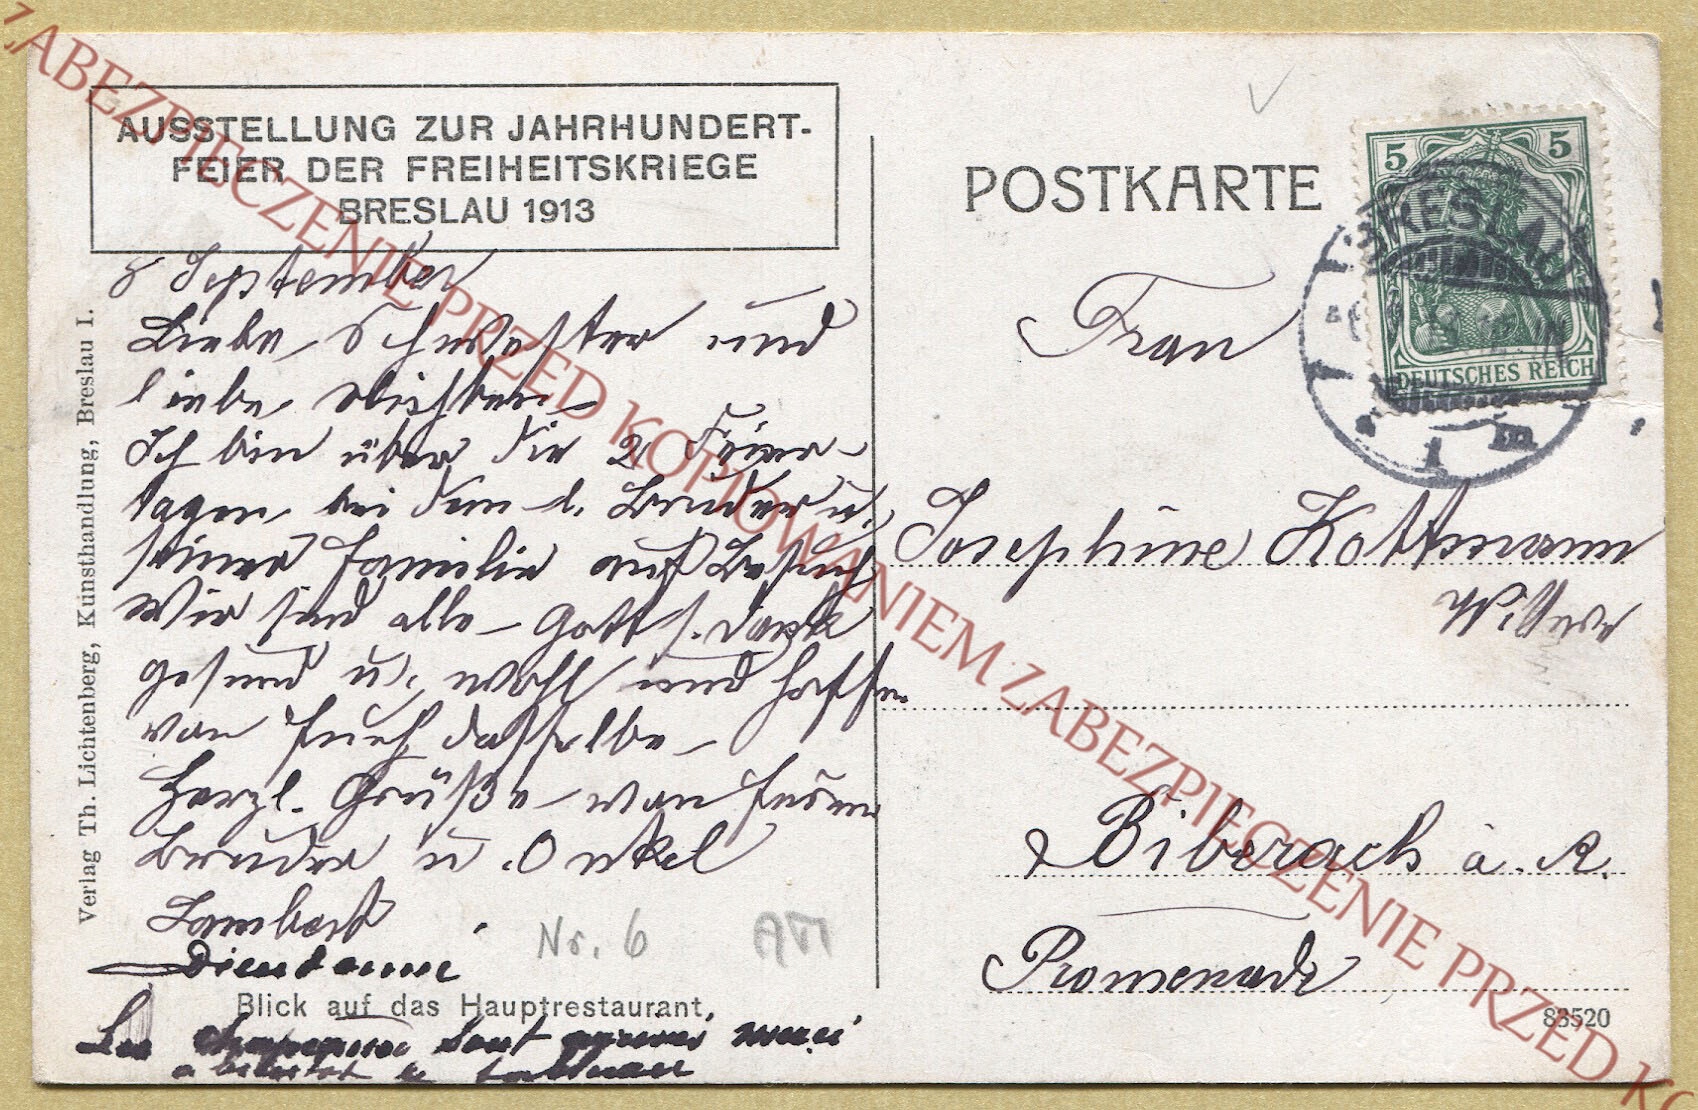 AUSSTELLUNG ZUR JAHRHUNDERT-
FEIER DER FREIHEITSKRIEGE
BRESLAU 1913
8 September
Liebe Schwester und
liebe Nichten
Ich bin über die 2 Feier-
tagen bei dem l. Bruder u.
seiner Familie auf Besuch
Wir sind alle Gott s. dank
gesund u. wohl und hoffen
von Euch dasselbe
Herzl. Grüße von Eurem
Bruder u. Onkel
Lambert
Nr. 6
Blick auf das Hauptrestaurant.
sont merci
Verlag Th. Lichtenberg, Kunsthandlung, Breslau I.
POSTKARTE
5 5
DEUTSCHES REICH
BRESLAU
1 m
Frau
Josephine Kottmann
Wittwe
Biberach a. R.
Promenade
83520
ZABEZPIECZENIE PRZED KOPIOWANIEM ZABEZPIECZENIE PRZED KO